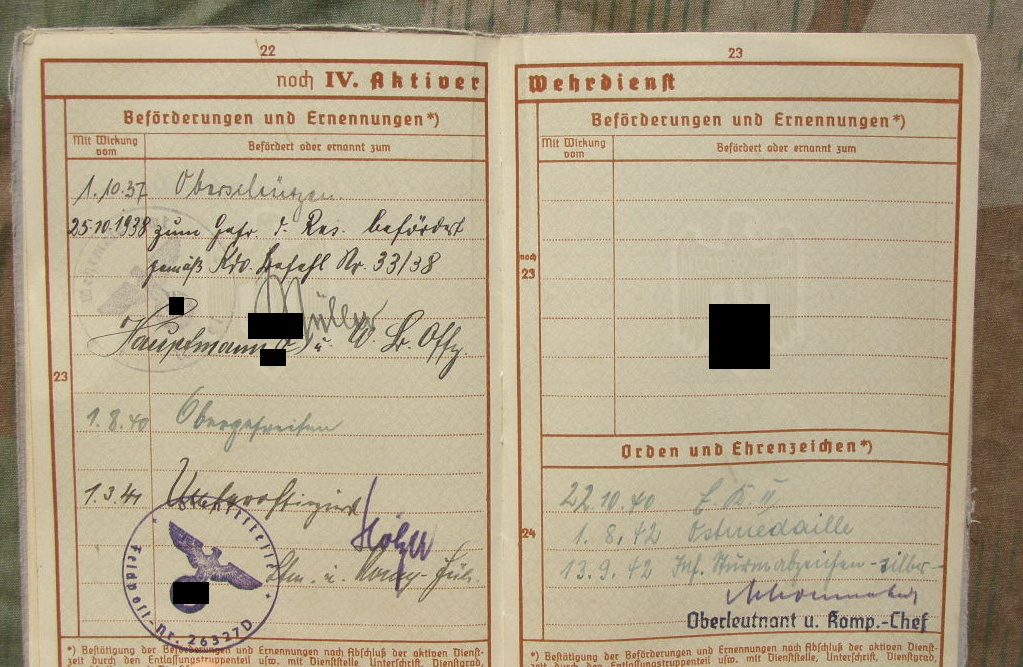 22
noch IV. Aktiver
Beförderungen und Ernennungen*)
Mit Wirkung vom
Befördert oder ernannt zum
1.10.37 Oberschützen
25.10.1938 zum Gefr. d. Res. befördert
gemäß Kdo. Befehl Nr. 33/38
Müller
Hauptmann u. Offz.
23
1.8.40 Obergefreiten
1.3.41 Unteroffizier
Feldpost-Nr. 26327D
*) Bestätigung der Beförderungen nach Abschluß der aktiven Dienst-
zeit durch den Entlassungstruppenteil usw. mit Dienststelle, Unterschrift, Dienstgrad,
23
Wehrdienst
Beförderungen und Ernennungen*)
Mit Wirkung vom
Befördert oder ernannt zum
noch
23
Orden und Ehrenzeichen*)
22.10.40 E.K. II
24
1.8.42 Ostmedaille
13.9.42 Inf. Sturmabzeichen -silber-
Oberleutnant u. Komp.-Chef
*) Bestätigung der Beförderungen und Ernennungen nach Abschluß der aktiven Dienst-
zeit durch den Entlassungstruppenteil usw. mit Dienststelle, Unterschrift, Dienstgrad,